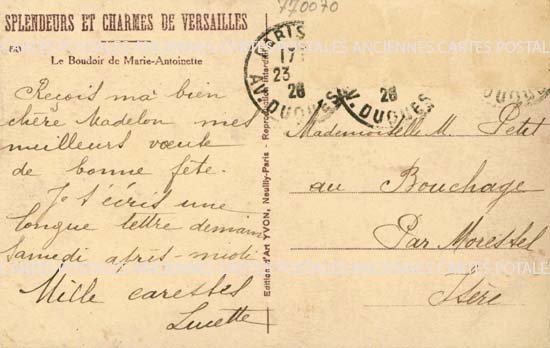 770070
SPLENDEURS ET CHARMES DE VERSAILLES
Le Boudoir de Marie-Antoinette
Reçois ma bien
chère Madelon mes
meilleurs vœux
de bonne fête.
Je t'écris une
longue lettre demain
samedi après-midi
Mille caresses
Lucette
Edition d'Art YVON, Neuilly-Paris - Reproduction interdite
PARIS
17
23
26
AV. DUQUES
26
V. DUQUES
Mademoiselle M. Petit
au Bouchage
Par Morestel
Isère
CARTES POSTALES ANCIENNES CARTES POSTALES ANCIENNES CARTES POSTALES